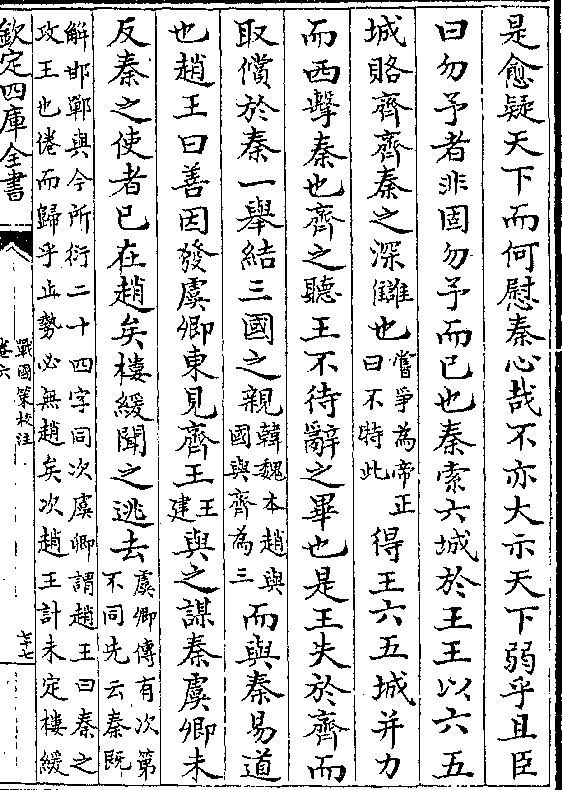 是愈疑天下而何慰秦心哉不亦大示天下弱乎且臣
曰勿予者非固勿予而已也秦索六城於王王以六五
城賂齊齊秦之深讎也嘗爭為帝正曰不特此得王六五城并力
而西擊秦也齊之聽王不待辭之畢也是王失於齊而
取償於秦一舉結三國之親韓魏本趙與國與齊為三而與秦易道
也趙王曰善因發虞卿東見齊王王建與之謀秦虞卿未
反秦之使者已在趙矣樓緩聞之逃去虞卿傳有次第不同先云秦既
解邯鄲與今所衍二十四字同次虞卿謂趙王曰秦之
攻王也倦而歸乎止勢必無趙矣次趙王計未定樓緩
欽定四庫全書
戰國策校注
卷六
七十七